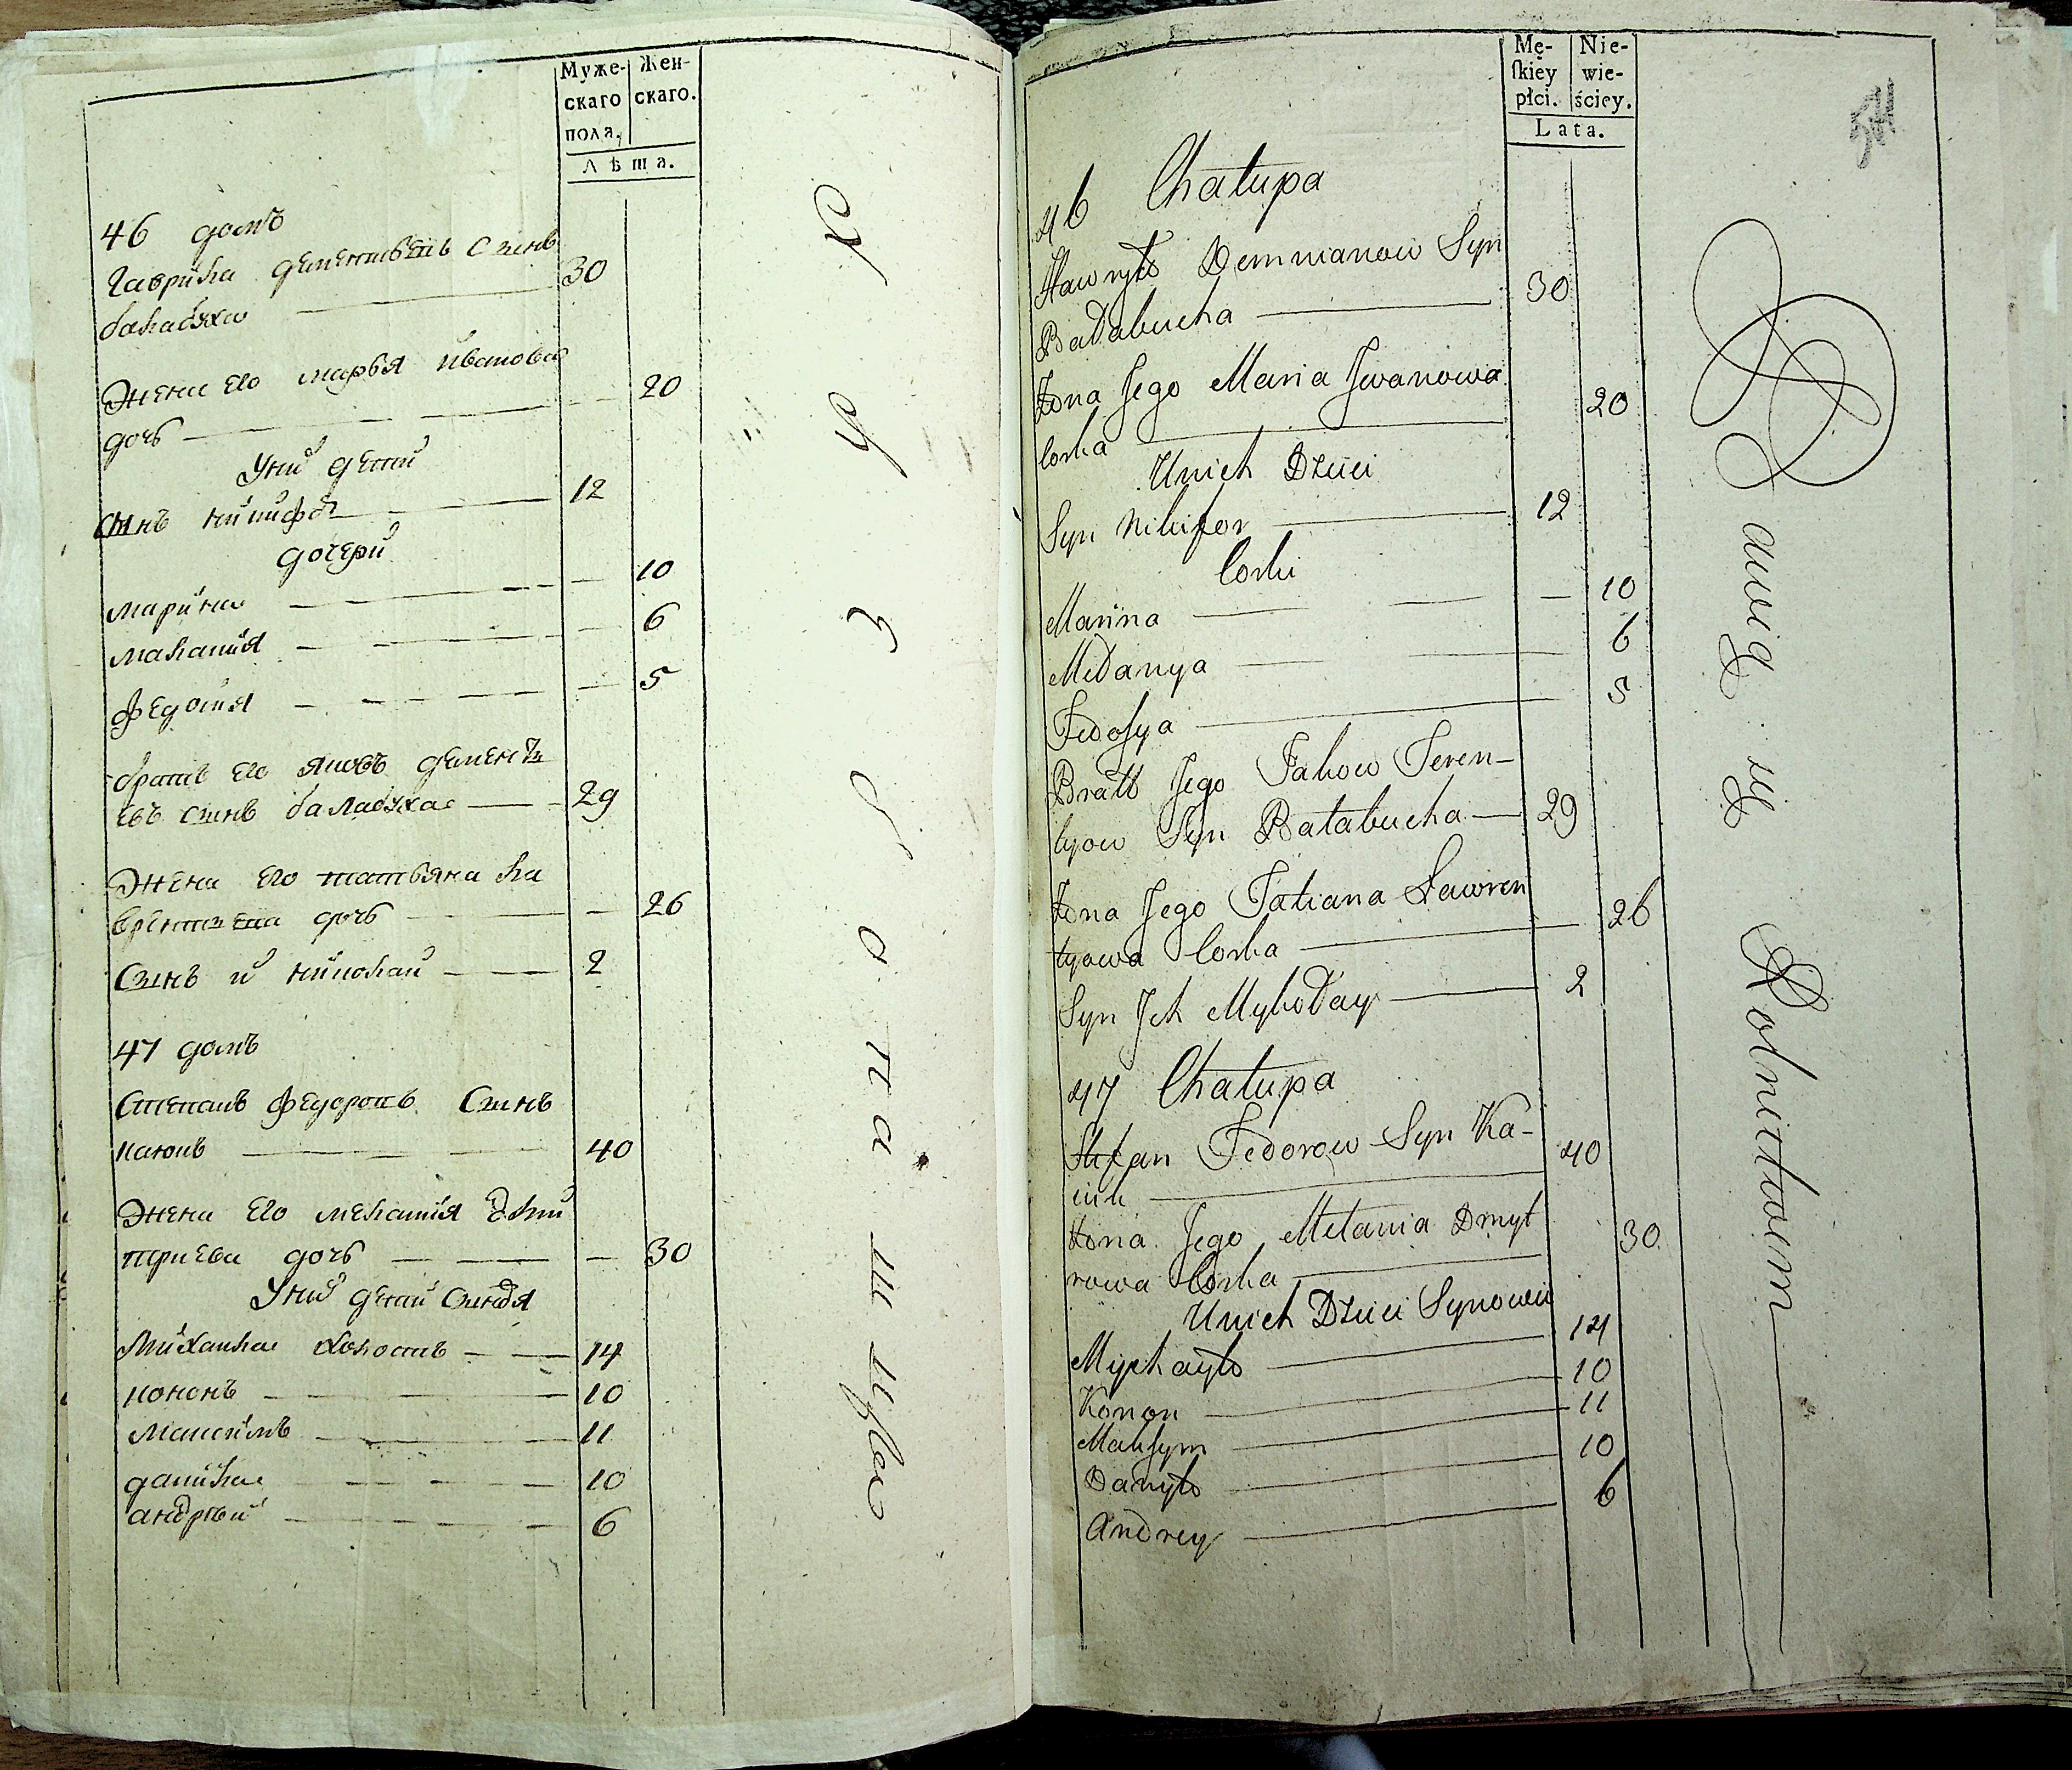 Муже-
скаго
пола,
Жен-
скаго.
Лѣта.
46 домъ
Гаврила дементиевъ сынъ
балабуха 30
Жена его марья иванова
дочь 20
У них дети
сынъ никифоръ 12
дочери
марина 10
маланія 6
федосия 5
братъ его яковъ дементи
евъ сынъ балабуха 29
Жена его татьяна ла
врентиева дочь 26
сынъ их николай 2
47 домъ
Степанъ федоровъ сынъ
40
Жена его меланія дми
триева дочь 30
У них дети сыновья
Михайла холостъ 14
кононъ 10
максимъ 11
данила 10
андрѣй 6
Mę-
ſkiey
płci.
Nie-
wie-
ściey.
Lata.
46 Chałupa
Hawryło Demmianow Syn
Bałabucha 30
Żona Jego Maria Jwanowa
Corka 20
Unich Dzieci
Syn Nikifor 12
Corki
Marina 10
Mełanya 6
Fedosya 5
Bratt Jego Jakow Teren-
tyow Syn Bałabucha 29
Żona Jego Tatiana Ławren
tyowa Corka 26
Syn Jch Mykołay 2
47 Chałupa
Stefan Fedorow Syn Ka-
40
Żona Jego Mełania Dmyt
rowa Corka 30
Unich Dzieci Synowie
Mychayło 14
Konon 10
Maksym 11
Danyło 10
Andrey 6
Rolnictwem